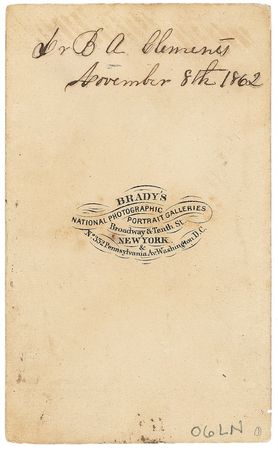 Dr B A Clements
November 8th 1862
BRADY'S
NATIONAL PHOTOGRAPHIC
PORTRAIT GALLERIES
Broadway & Tenth St.
NEW YORK
&
No 352 Pennsylvania Av. Washington, D.C.
06LN